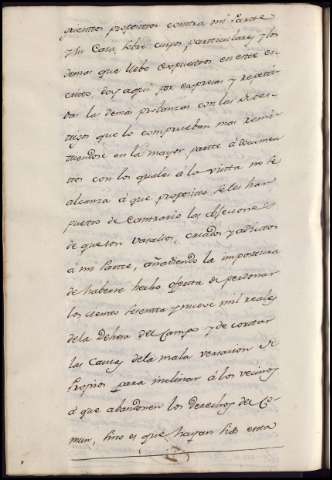 puestos propositos contra mi Parte
y su Casa, sobre cuios particulares y los
demas que llebo expuestos en este es-
crito, doy aqui por expresas y repeti-
das las demas probanzas con los
que lo comprueban mas remi-
tiendose en la mayor parte á documen-
tos con los quales á la vista no se
alcanza á que proposito se les han
puesto de Contrario las obsecione
de que son vasallos, criados y adictos
á mi Parte, añadiendo la impostura
de haberse hecho oferta de perdonar
los ciento setenta y nueve mil reales
de la Dehesa del Campo y de cortar
las Causas de la mala versacion de
Propios para inclinar á los vecinos
á que abandonen los derechos del Co-
mun, sino es que hayan sido esta